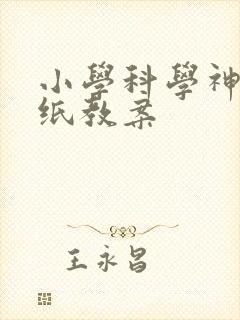 小學科學神
纸教案
王永昌